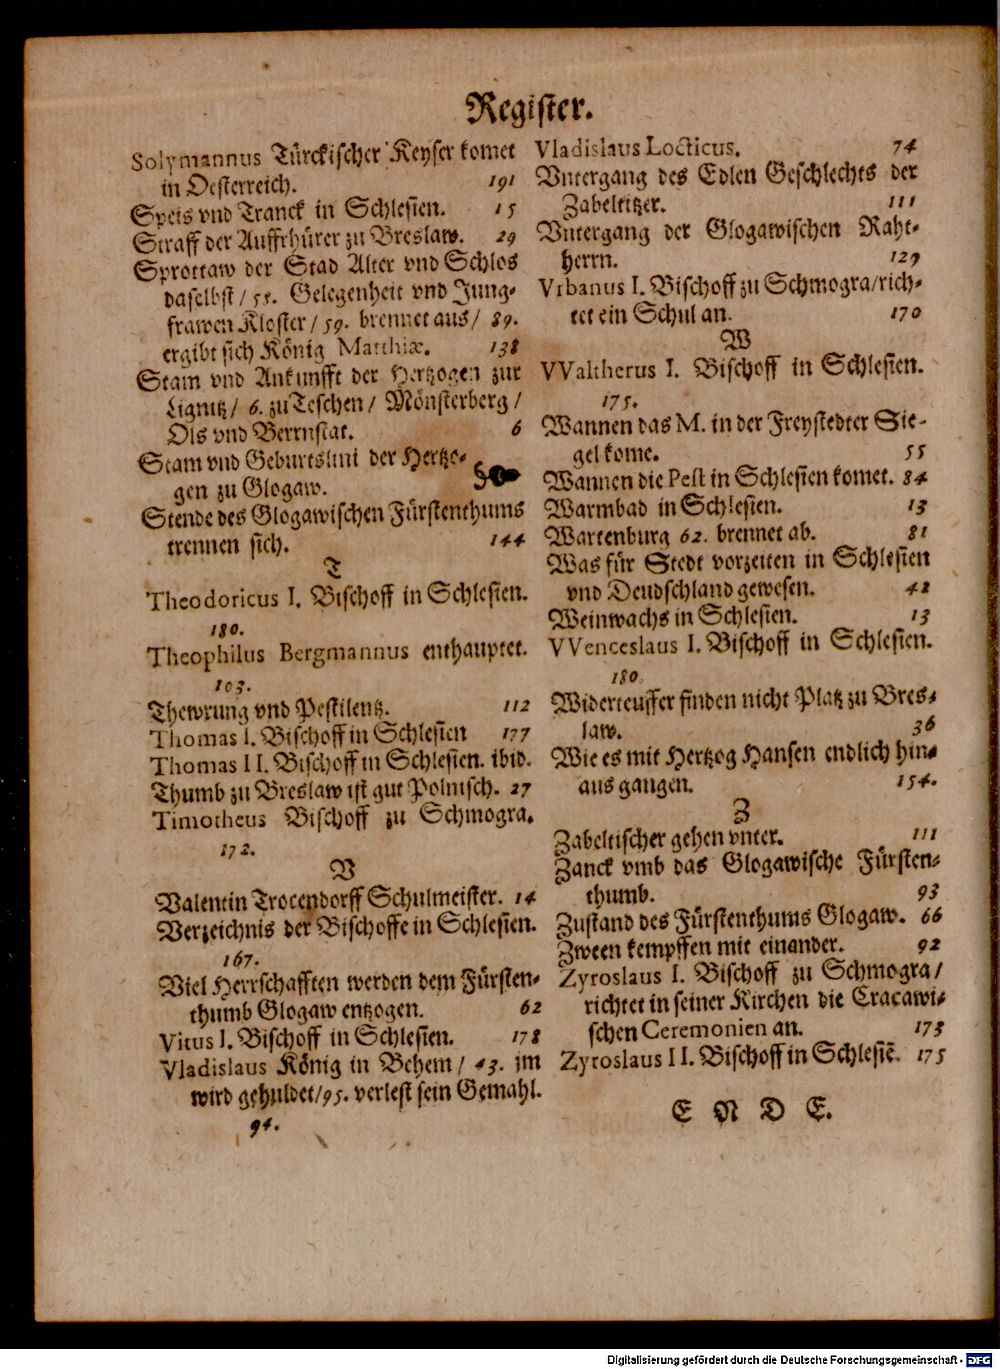 Register.
Solymannus Türckischer Keyser komet
in Oesterreich. 191
Speis vnd Tranck in Schlesien. 15
Straff der Auffrhürer zu Breslaw. 29
Sprottaw der Stad Alter vnd Schlos
daselbst / 55. Gelegenheit vnd Jung-
frawen Kloster / 59. brennet aus / 89.
ergibt sich König Matthiæ. 138
Stam vnd Ankunfft der Hertzogen zur
Lignitz / 6. zu Teschen / Mönsterberg /
Ols vnd Bernstat. 6
Stam vnd Geburtslini der Hertzo-
gen zu Glogaw.
Stende des Glogawischen Fürstenthums
trennen sich. 144
T
Theodoricus I. Bischoff in Schlesien.
180.
Theophilus Bergmannus enthauptet.
103.
Thewrung vnd Pestilentz. 112
Thomas I. Bischoff in Schlesien 177
Thomas II. Bischoff in Schlesien. ibid.
Thumb zu Breslaw ist gut Polnisch. 27
Timotheus Bischoff zu Schmogra.
172.
V
Valentin Trocendorff Schulmeister. 14
Verzeichnis der Bischoffe in Schlesien.
167.
Viel Herrschafften werden dem Fürsten-
thumb Glogaw entzogen. 62
Vitus I. Bischoff in Schlesien. 178
Vladislaus König in Behem / 43. jm
wird gehuldet / 95. verlest sein Gemahl.
94.
Vladislaus Locticus. 74
Vntergang des Edlen Geschlechts der
Zabeltitzer. 111
Vntergang der Glogawischen Raht-
herrn. 129
Vrbanus I. Bischoff zu Schmogra/rich-
tet ein Schul an. 170
W
VValtherus I. Bischoff in Schlesien.
175.
Wannen das M. in der Freystedter Sie-
gel kome. 55
Wannen die Pest in Schlesien komet. 84
Warmbad in Schlesien. 13
Wartenburg 62. brennet ab. 81
Was für Stedt vorzeiten in Schlesien
vnd Deudschland gewesen. 42
Weinwachs in Schlesien. 13
VVenceslaus I. Bischoff in Schlesien.
180.
Widerteuffer finden nicht Platz zu Bres-
law. 36
Wie es mit Hertzog Hansen endlich hin-
aus gangen. 154.
Z
Zabeltischer gehen vnter. 111
Zanck vmb das Glogawische Fürsten-
thumb. 93
Zustand des Fürstenthums Glogaw. 66
Zween kempffen mit einander. 92
Zyroslaus I. Bischoff zu Schmogra /
richtet in seiner Kirchen die Cracawi-
schen Ceremonien an. 173
Zyroslaus II. Bischoff in Schlesiē. 175
E N D E.
Digitalisierung gefördert durch die Deutsche Forschungsgemeinschaft - DFG